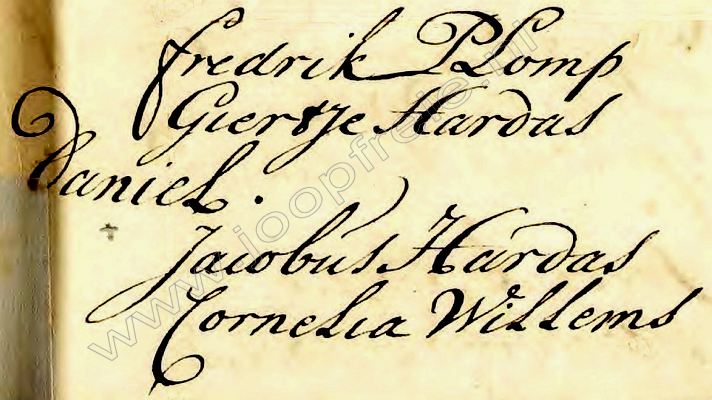 fredrik PLomp
Giertje Hardas
Daniel.
Jacobus Hardas
Cornelia Willems
www.joopfreie.nl